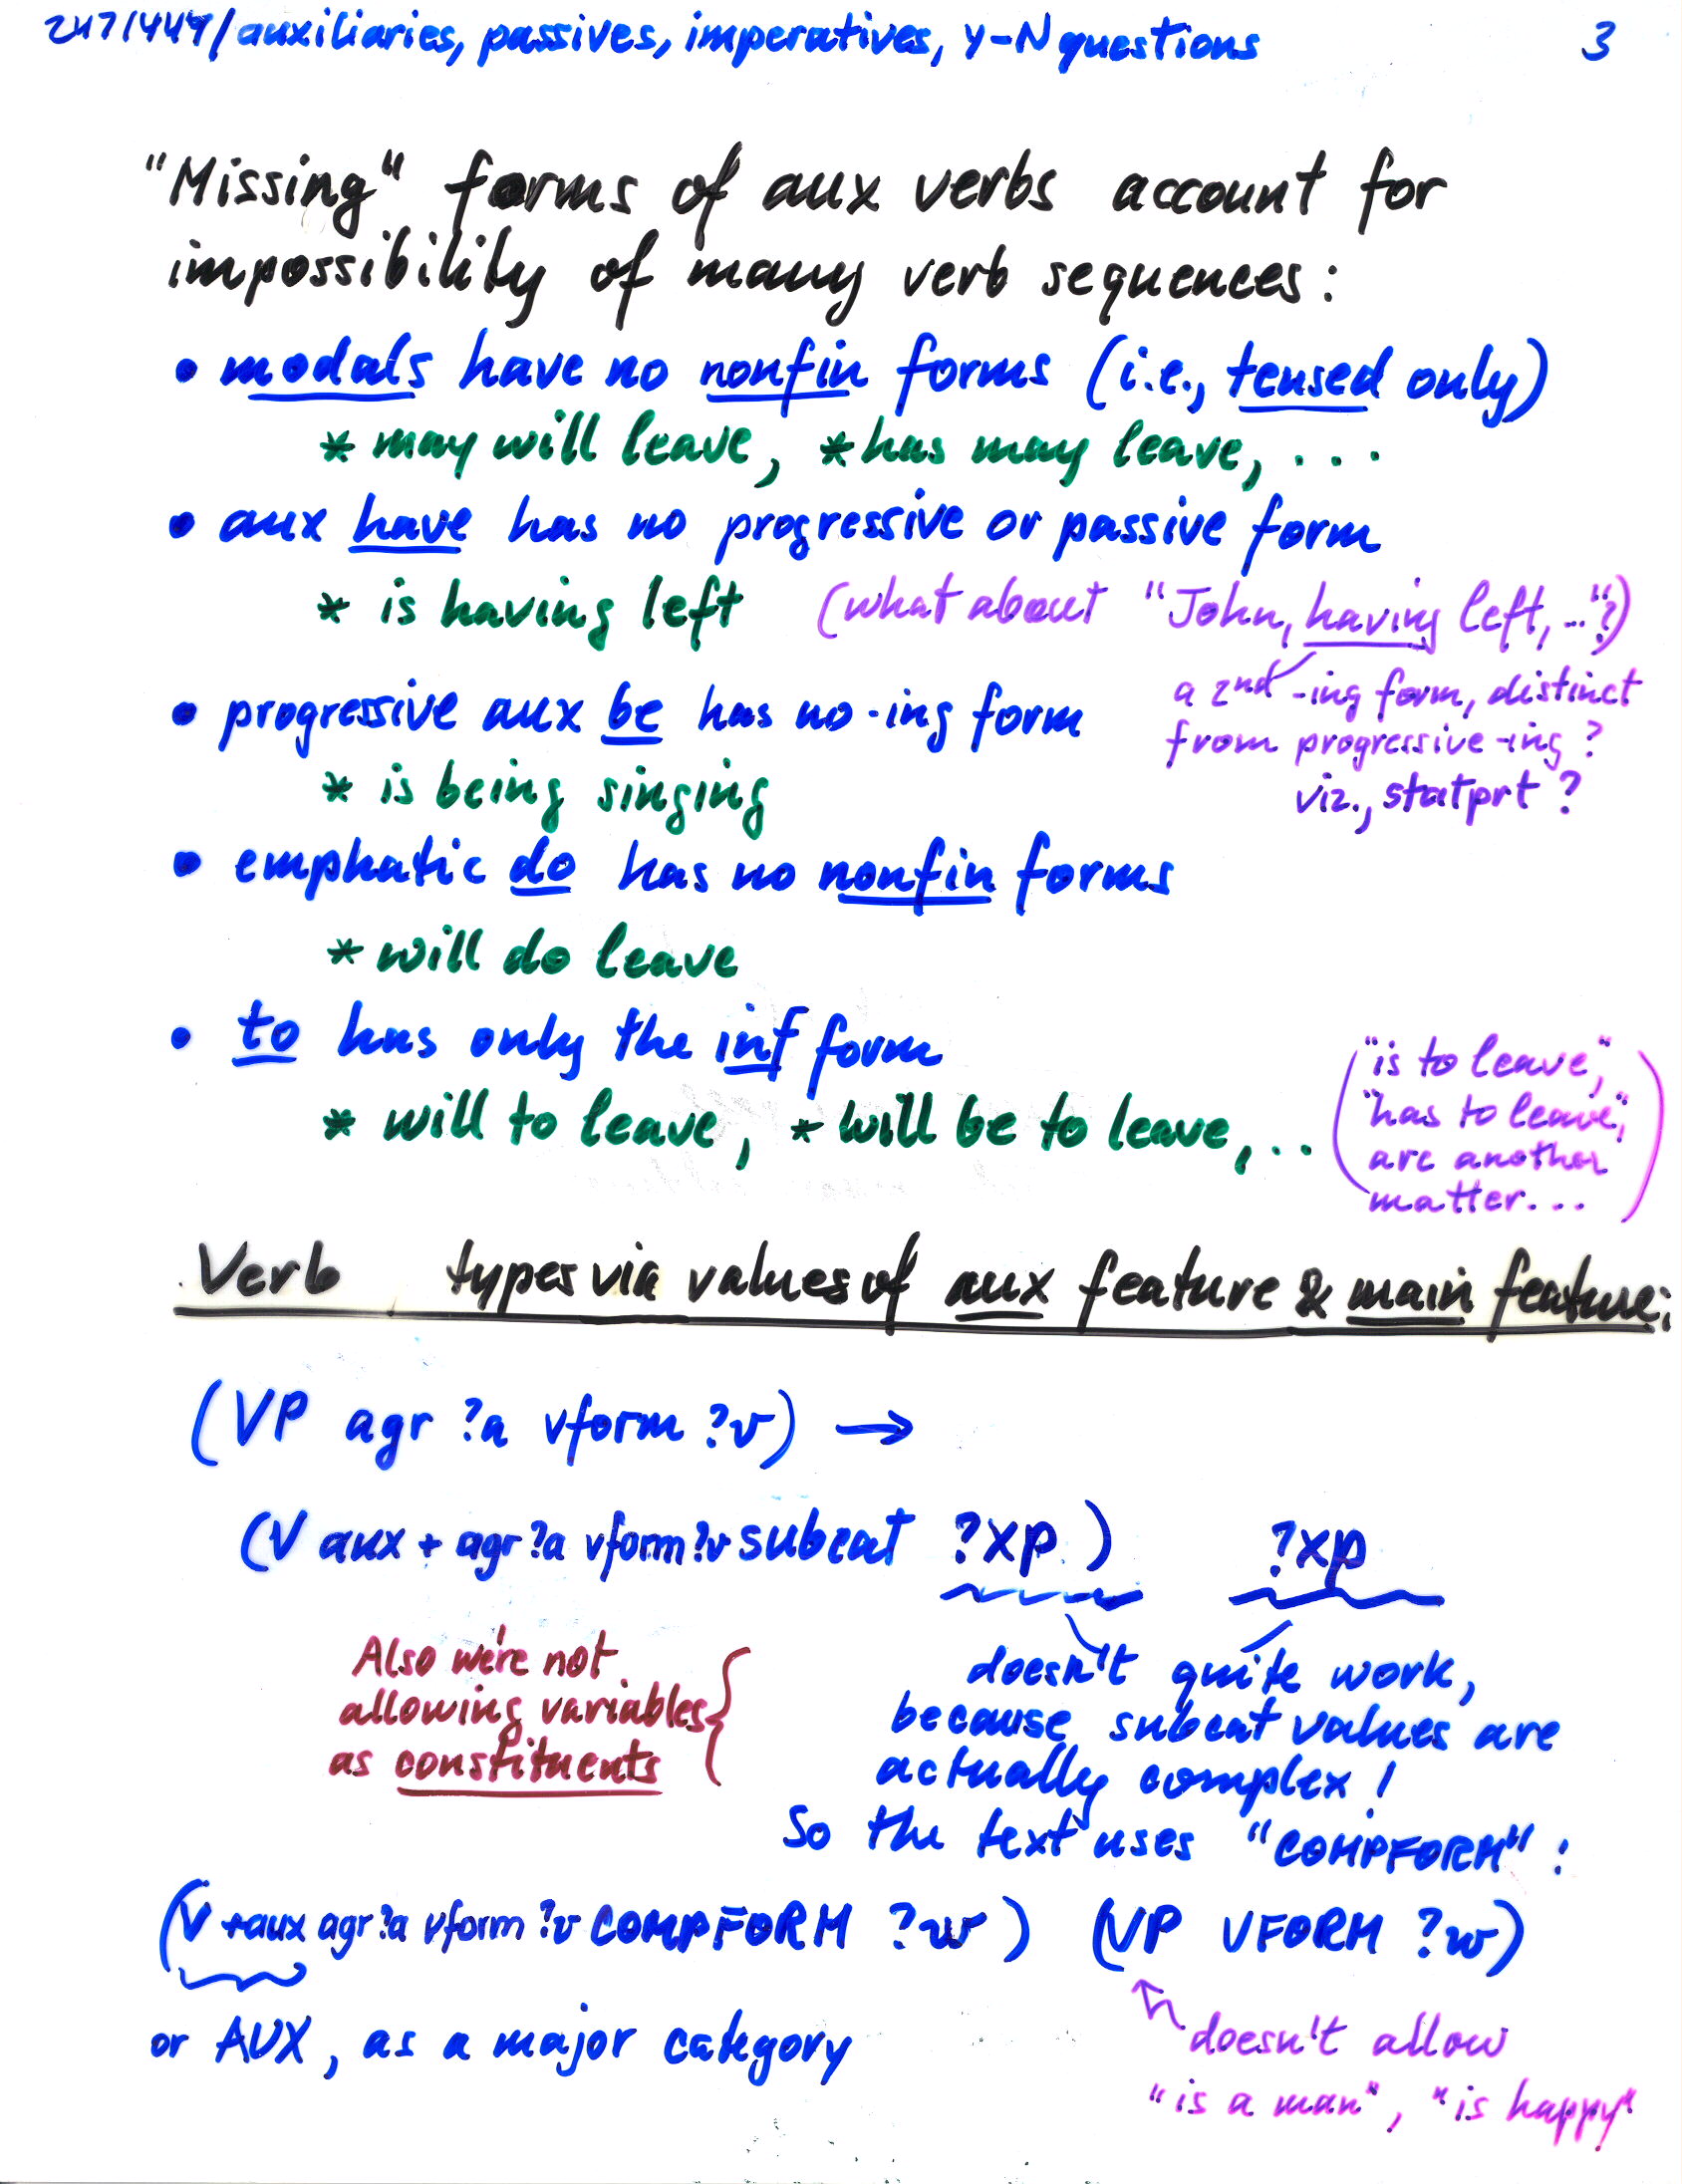 247/447/auxiliaries, passives, imperatives, Y-N questions 3
"Missing" forms of aux verbs account for
impossibility of many verb sequences:
• modals have no nonfin forms (i.e., tensed only)
* may will leave, * has may leave, ...
• aux have has no progressive or passive form
* is having left (what about "John, having left, ..."?)
a 2nd -ing form, distinct
from progressive -ing?
viz., statprt?
• progressive aux be has no -ing form
* is being singing
• emphatic do has no nonfin forms
* will do leave
• to has only the inf form
* will to leave, * will be to leave, ..
("is to leave",
"has to leave",
are another
matter...)
Verb types via values of aux feature & main feature:
(VP agr ?a vform ?v) →
(V aux + agr ?a vform ?v subcat ?xp) ?xp
Also we're not
allowing variables
as constituents
doesn't quite work,
because subcat values are
actually complex!
So the text uses "COMPFORM":
(V +aux agr ?a vform ?v COMPFORM ?w) (VP VFORM ?w)
or AUX, as a major category
doesn't allow
"is a man", "is happy"